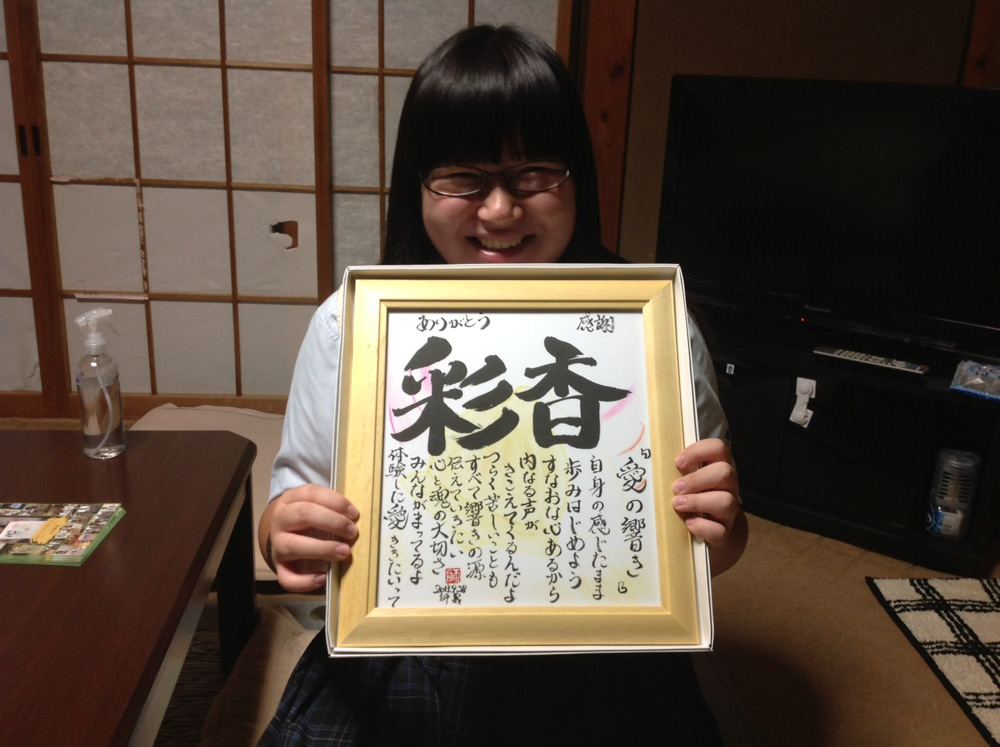 ありがとう
感謝
彩香
「愛の響き」
自身の感じたまま
歩みはじめよう
すなおな心あるから
内なる声が
きこえてくるんだよ
つらく苦しいことも
すべて響きの源
伝えていきたい
心と魂の大切さ
みんながまってるよ
体験した愛ききたいって